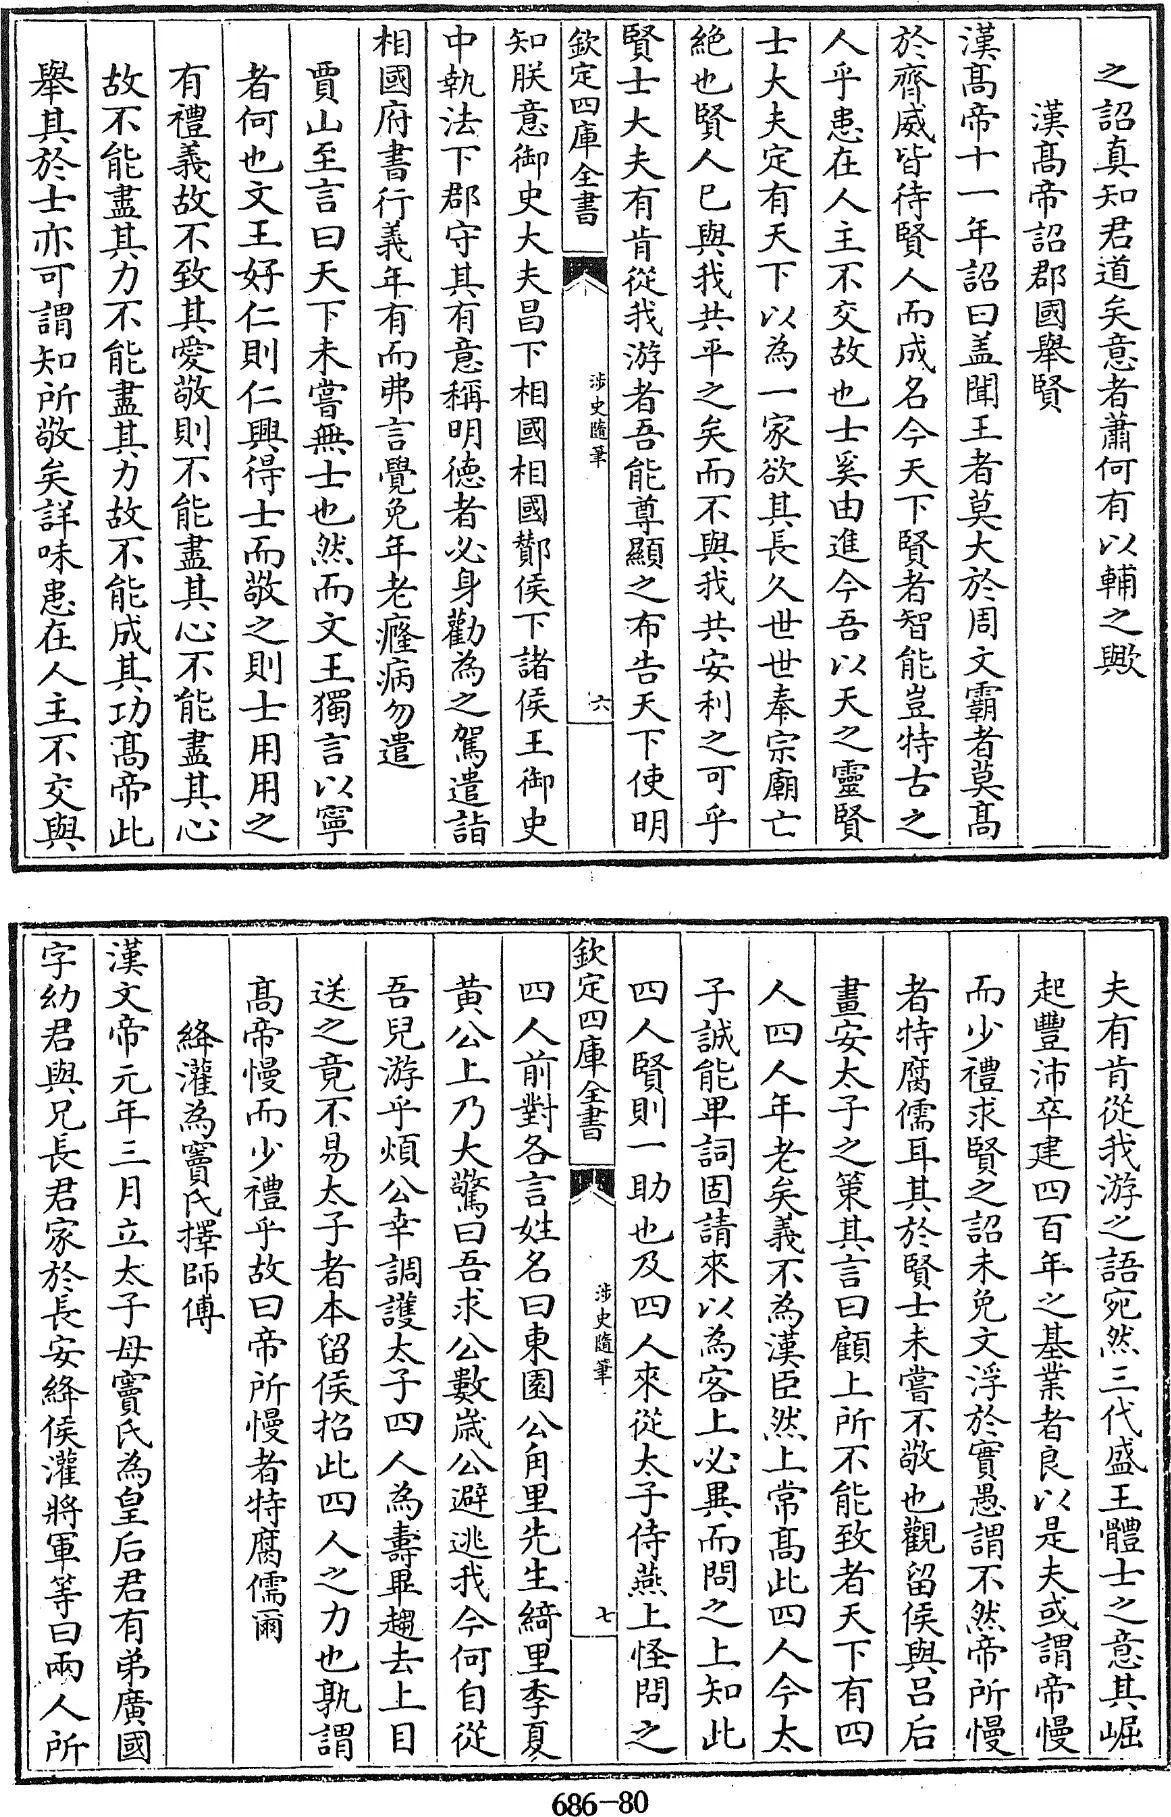 之詔真知君道矣意者蕭何有以輔之歟
漢髙帝詔郡國舉賢
漢髙帝十一年詔曰盖聞王者莫大於周文霸者莫髙
於齊威皆待賢人而成名今天下賢者智能豈特古之
人乎患在人主不交故也士奚由進今吾以天之靈賢
士大夫定有天下以為一家欲其長久世世奉宗廟亡
絶也賢人已與我共平之矣而不與我共安利之可乎
賢士大夫有肯從我游者吾能尊顯之布告天下使明
欽定四庫全書
涉史隨筆
六
知朕意御史大夫昌下相國相國酇侯下諸侯王御史
中執法下郡守其有意稱明德者必身勸為之駕遣詣
相國府書行義年有而弗言覺免年老癃病勿遣
賈山至言曰天下未嘗無士也然而文王獨言以寧
者何也文王好仁則仁興得士而敬之則士用用之
有禮義故不致其愛敬則不能盡其心不能盡其心
故不能盡其力不能盡其力故不能成其功髙帝此
舉其於士亦可謂知所敬矣詳味患在人主不交與
夫有肯從我游之語宛然三代盛王體士之意其崛
起豐沛卒建四百年之基業者良以是夫或謂帝慢
而少禮求賢之詔未免文浮於實愚謂不然帝所慢
者特腐儒耳其於賢士未嘗不敬也觀留侯與吕后
畫安太子之策其言曰顧上所不能致者天下有四
人四人年老矣義不為漢臣然上常髙此四人今太
子誠能卑詞固請來以為客上必異而問之上知此
四人賢則一助也及四人來從太子侍燕上怪問之
欽定四庫全書
涉史隨筆
七
四人前對各言姓名曰東園公角里先生綺里季夏
黄公上乃大驚曰吾求公數嵗公避逃我今何自從
吾兒游乎煩公幸調護太子四人為壽畢趨去上目
送之竟不易太子者本留侯招此四人之力也孰謂
髙帝慢而少禮乎故曰帝所慢者特腐儒爾
絳灌為竇氏擇師傅
漢文帝元年三月立太子母竇氏為皇后君有弟廣國
字幼君與兄長君家於長安絳侯灌將軍等曰兩人所
686-80